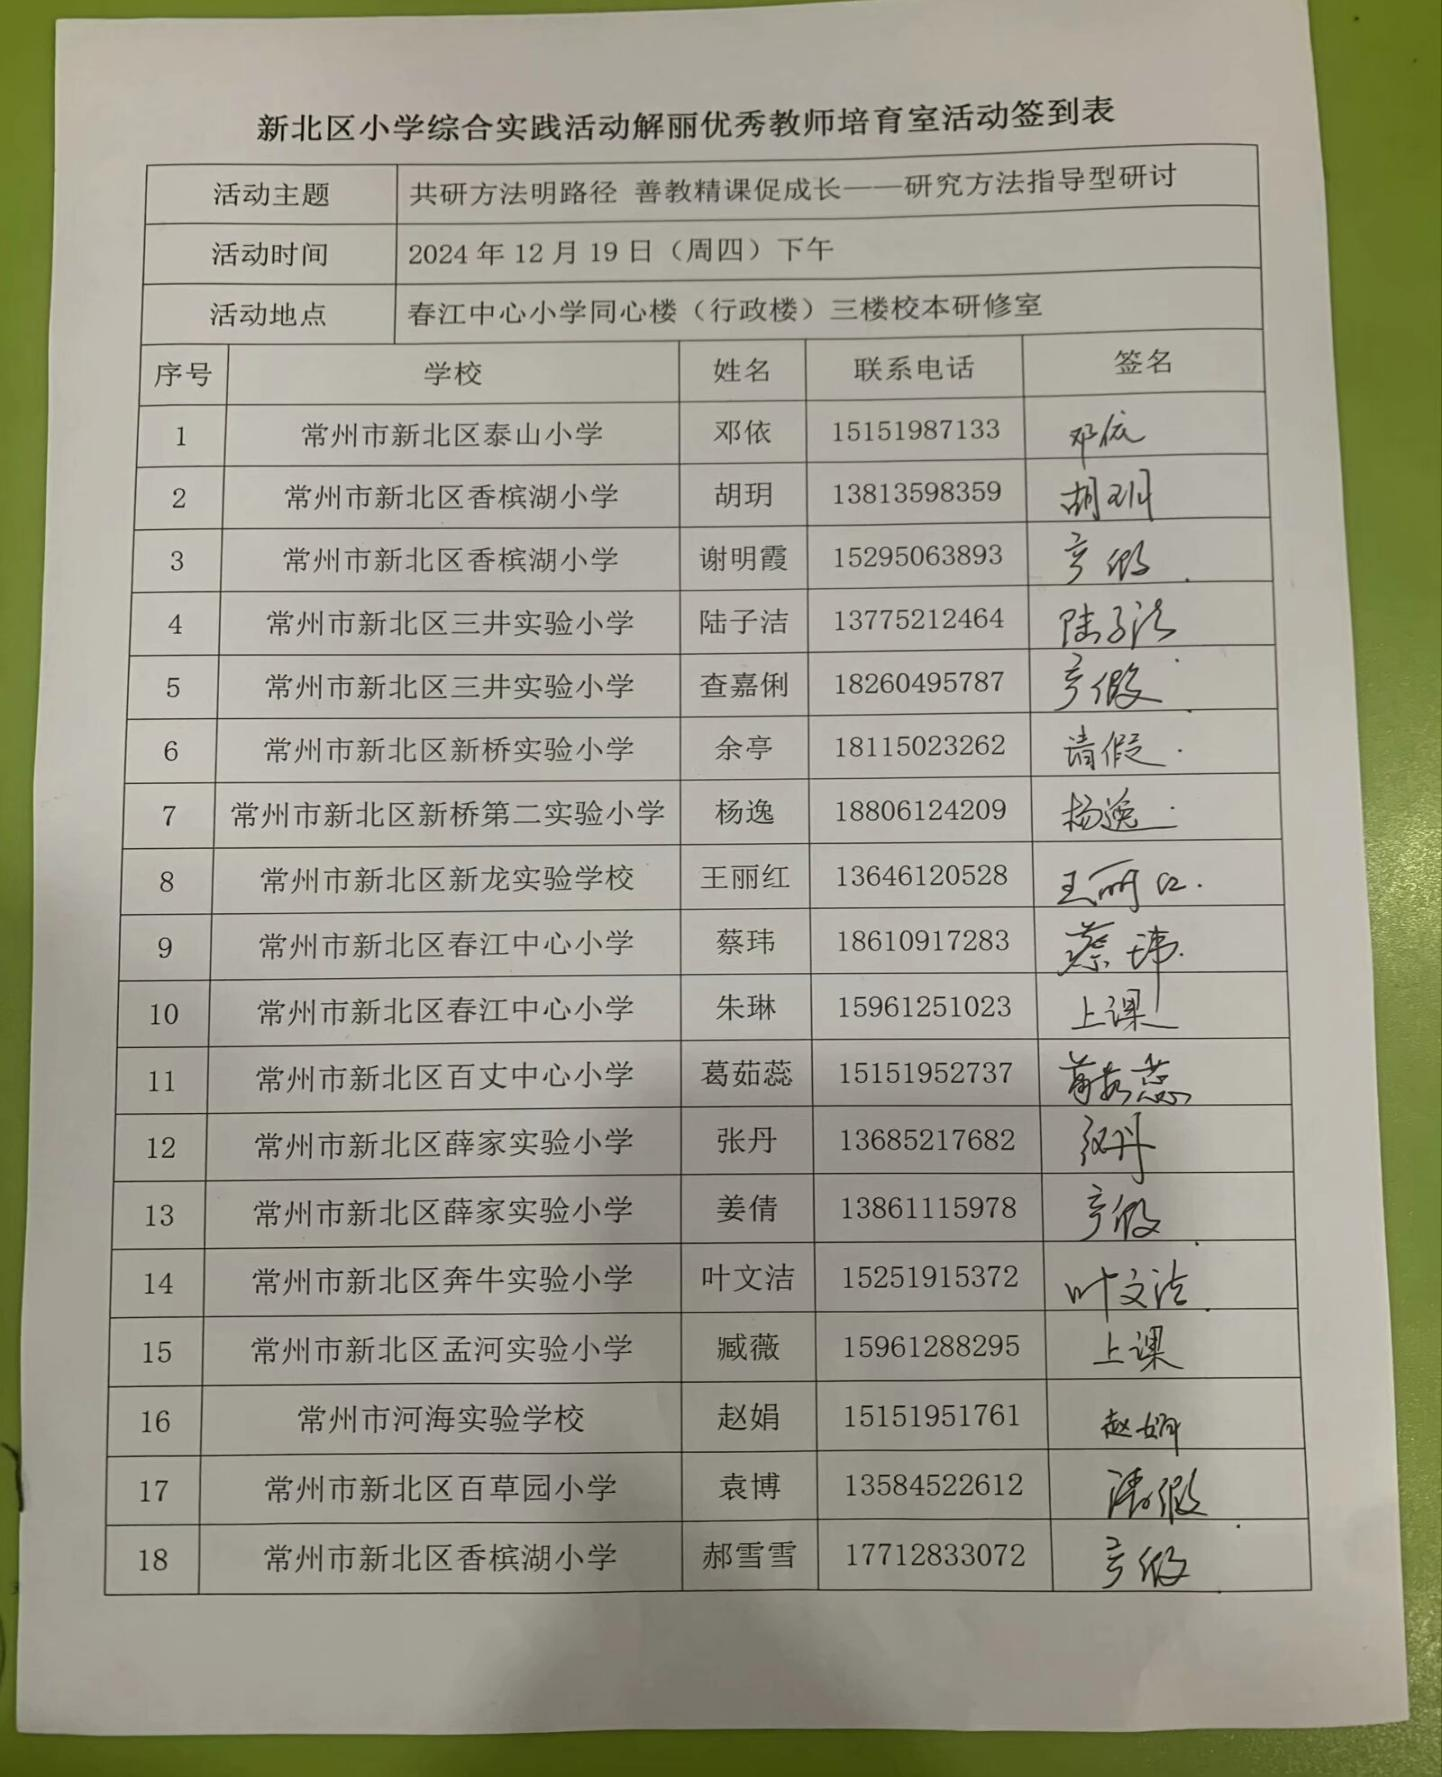 新北区小学综合实践活动解丽优秀教师培育室活动签到表
活动主题 共研方法明路径 善教精课促成长——研究方法指导型研讨
活动时间 2024年12月19日（周四）下午
活动地点 春江中心小学同心楼（行政楼）三楼校本研修室
序号 学校 姓名 联系电话 签名
1 常州市新北区泰山小学 邓依 15151987133 邓依
2 常州市新北区香槟湖小学 胡玥 13813598359 胡玥
3 常州市新北区香槟湖小学 谢明霞 15295063893 产假
4 常州市新北区三井实验小学 陆子洁 13775212464 陆子洁
5 常州市新北区三井实验小学 查嘉俐 18260495787 产假
6 常州市新北区新桥实验小学 余亭 18115023262 请假
7 常州市新北区新桥第二实验小学 杨逸 18806124209 杨逸
8 常州市新北区新龙实验学校 王丽红 13646120528 王丽红
9 常州市新北区春江中心小学 蔡玮 18610917283 蔡玮
10 常州市新北区春江中心小学 朱琳 15961251023 上课
11 常州市新北区百丈中心小学 葛茹蕊 15151952737 葛茹蕊
12 常州市新北区薛家实验小学 张丹 13685217682 张丹
13 常州市新北区薛家实验小学 姜倩 13861115978 产假
14 常州市新北区奔牛实验小学 叶文洁 15251915372 叶文洁
15 常州市新北区孟河实验小学 臧薇 15961288295 上课
16 常州市河海实验学校 赵娟 15151951761 赵娟
17 常州市新北区百草园小学 袁博 13584522612 请假
18 常州市新北区香槟湖小学 郝雪雪 17712833072 产假